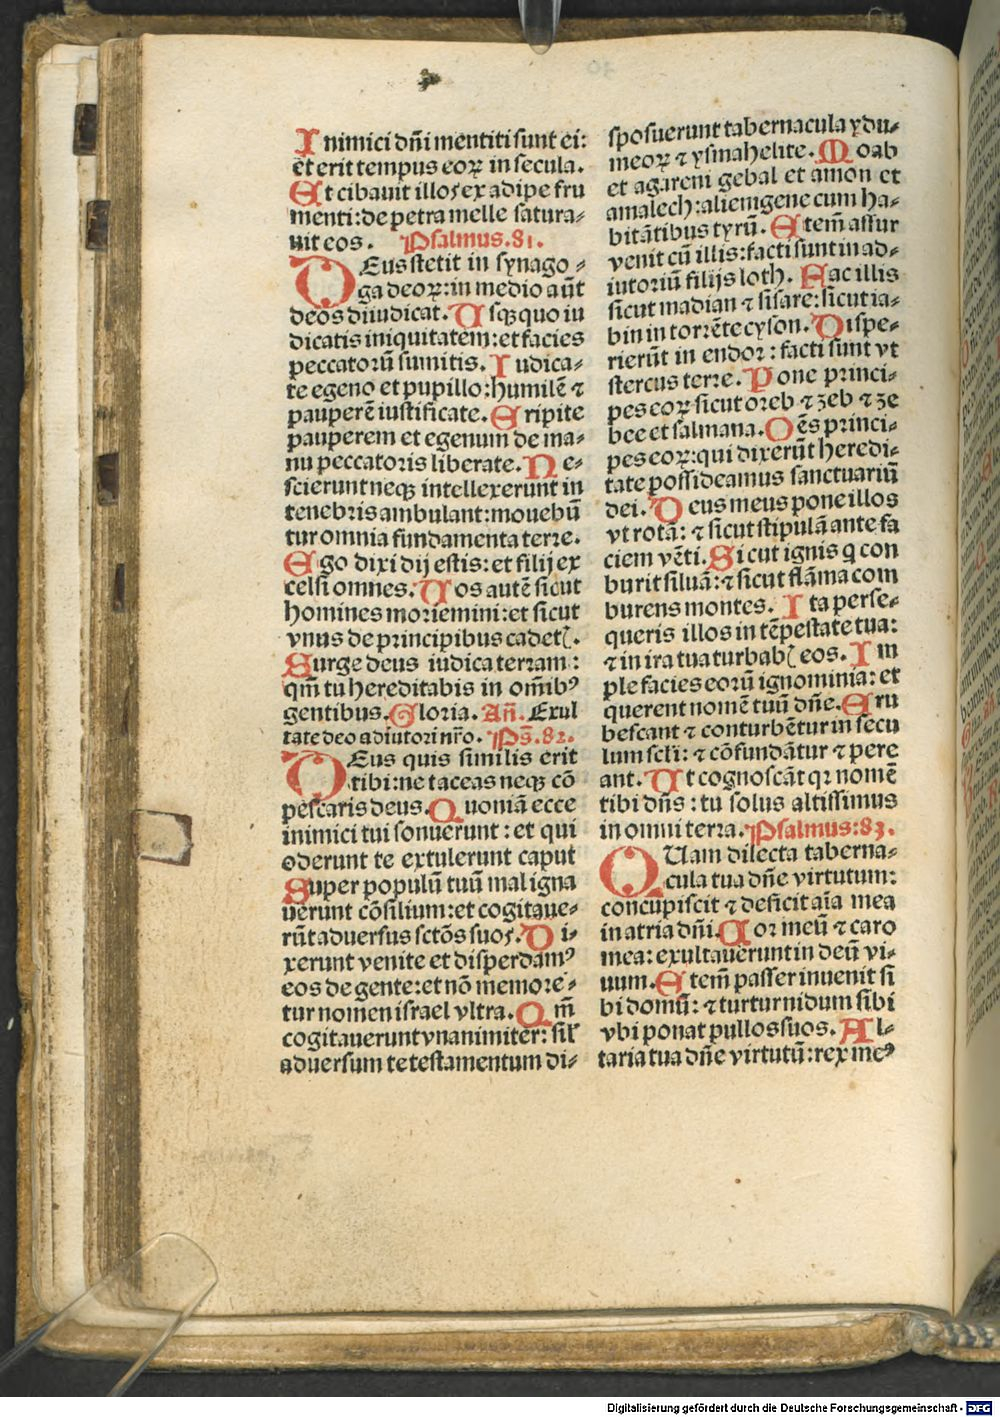 Inimici dn̄i mentiti sunt ei:
et erit tempus eoꝝ in secula.
Et cibauit illos ex adipe fru
menti: de petra melle satura⸗
uit eos. Psalmus.81.
DEus stetit in synago⸗
ga deoꝝ: in medio aūt
deos diiudicat. Usqꝫ quo iu
dicatis iniquitatem: et facies
peccatorū sumitis. Iudica⸗
te egeno et pupillo: humilē ⁊
pauperē iustificate. Eripite
pauperem et egenum de ma⸗
nu peccatoris liberate. Ne⸗
scierunt neqꝫ intellexerunt in
tenebris ambulant: mouebū
tur omnia fundamenta terre.
Ego dixi dij estis: et filij ex
celsi omnes. Uos autē sicut
homines moriemini: et sicut
vnus de principibus cadetꝭ.
Surge deus iudica terram:
qm̄ tu hereditabis in om̄ibꝰ
gentibus. Gloria. An̄. Exul
tate deo adiutori nr̄o. Ps̄.82.
DEus quis similis erit
tibi: ne taceas neqꝫ cō
pescaris deus. Quoniā ecce
inimici tui sonuerunt: et qui
oderunt te extulerunt caput
Super populū tuū maligna
uerunt cōsilium: et cogitaue⸗
rūt aduersus sctōs suos. Di⸗
xerunt venite et disperdamꝰ
eos de gente: et nō memore⸗
tur nomen israel vltra. Qm̄
cogitauerunt vnanimiter: sil̄
aduersum te testamentum di⸗
sposuerunt tabernacula ydu⸗
meoꝝ ⁊ ysmahelite. Moab
et agareni gebal et amon et
amalech: alienigene cum ha⸗
bitātibus tyrū. Etem̄ assur
venit cū illis: facti sunt in ad⸗
iutoriū filijs loth. Fac illis
sicut madian ⁊ sisare: sicut ia⸗
bin in torrēte cyson. Dispe⸗
rierūt in endor: facti sunt vt
stercus terre. Pone princi⸗
pes eoꝝ sicut oreb ⁊ zeb ⁊ ze
bee et salmana. Oēs princi⸗
pes eoꝝ: qui dixerūt heredi⸗
tate possideamus sanctuariū
dei. Deus meus pone illos
vt rotā: ⁊ sicut stipulā ante fa
ciem vēti. Sicut ignis q con
burit siluā: ⁊ sicut flāma com
burens montes. Ita perse⸗
queris illos in tēpestate tua:
⁊ in ira tua turbabꝭ eos. Im
ple facies eorū ignominia: et
querent nomē tuū dn̄e. Eru
bescant ⁊ conturbētur in secu
lum scl̄i: ⁊ cōfundātur ⁊ pere
ant. Ut cognoscāt qꝛ nomē
tibi dn̄s: tu solus altissimus
in omni terra. Psalmus:83.
QUam dilecta taberna⸗
cula tua dn̄e virtutum:
concupiscit ⁊ deficit aīa mea
in atria dn̄i. Cor meū ⁊ caro
mea: exultauerunt in deū vi⸗
uum. Etem̄ passer inuenit si
bi domū: ⁊ turtur nidum sibi
vbi ponat pullos suos. Al⸗
taria tua dn̄e virtutū: rex meꝰ
Digitalisierung gefördert durch die Deutsche Forschungsgemeinschaft - DFG